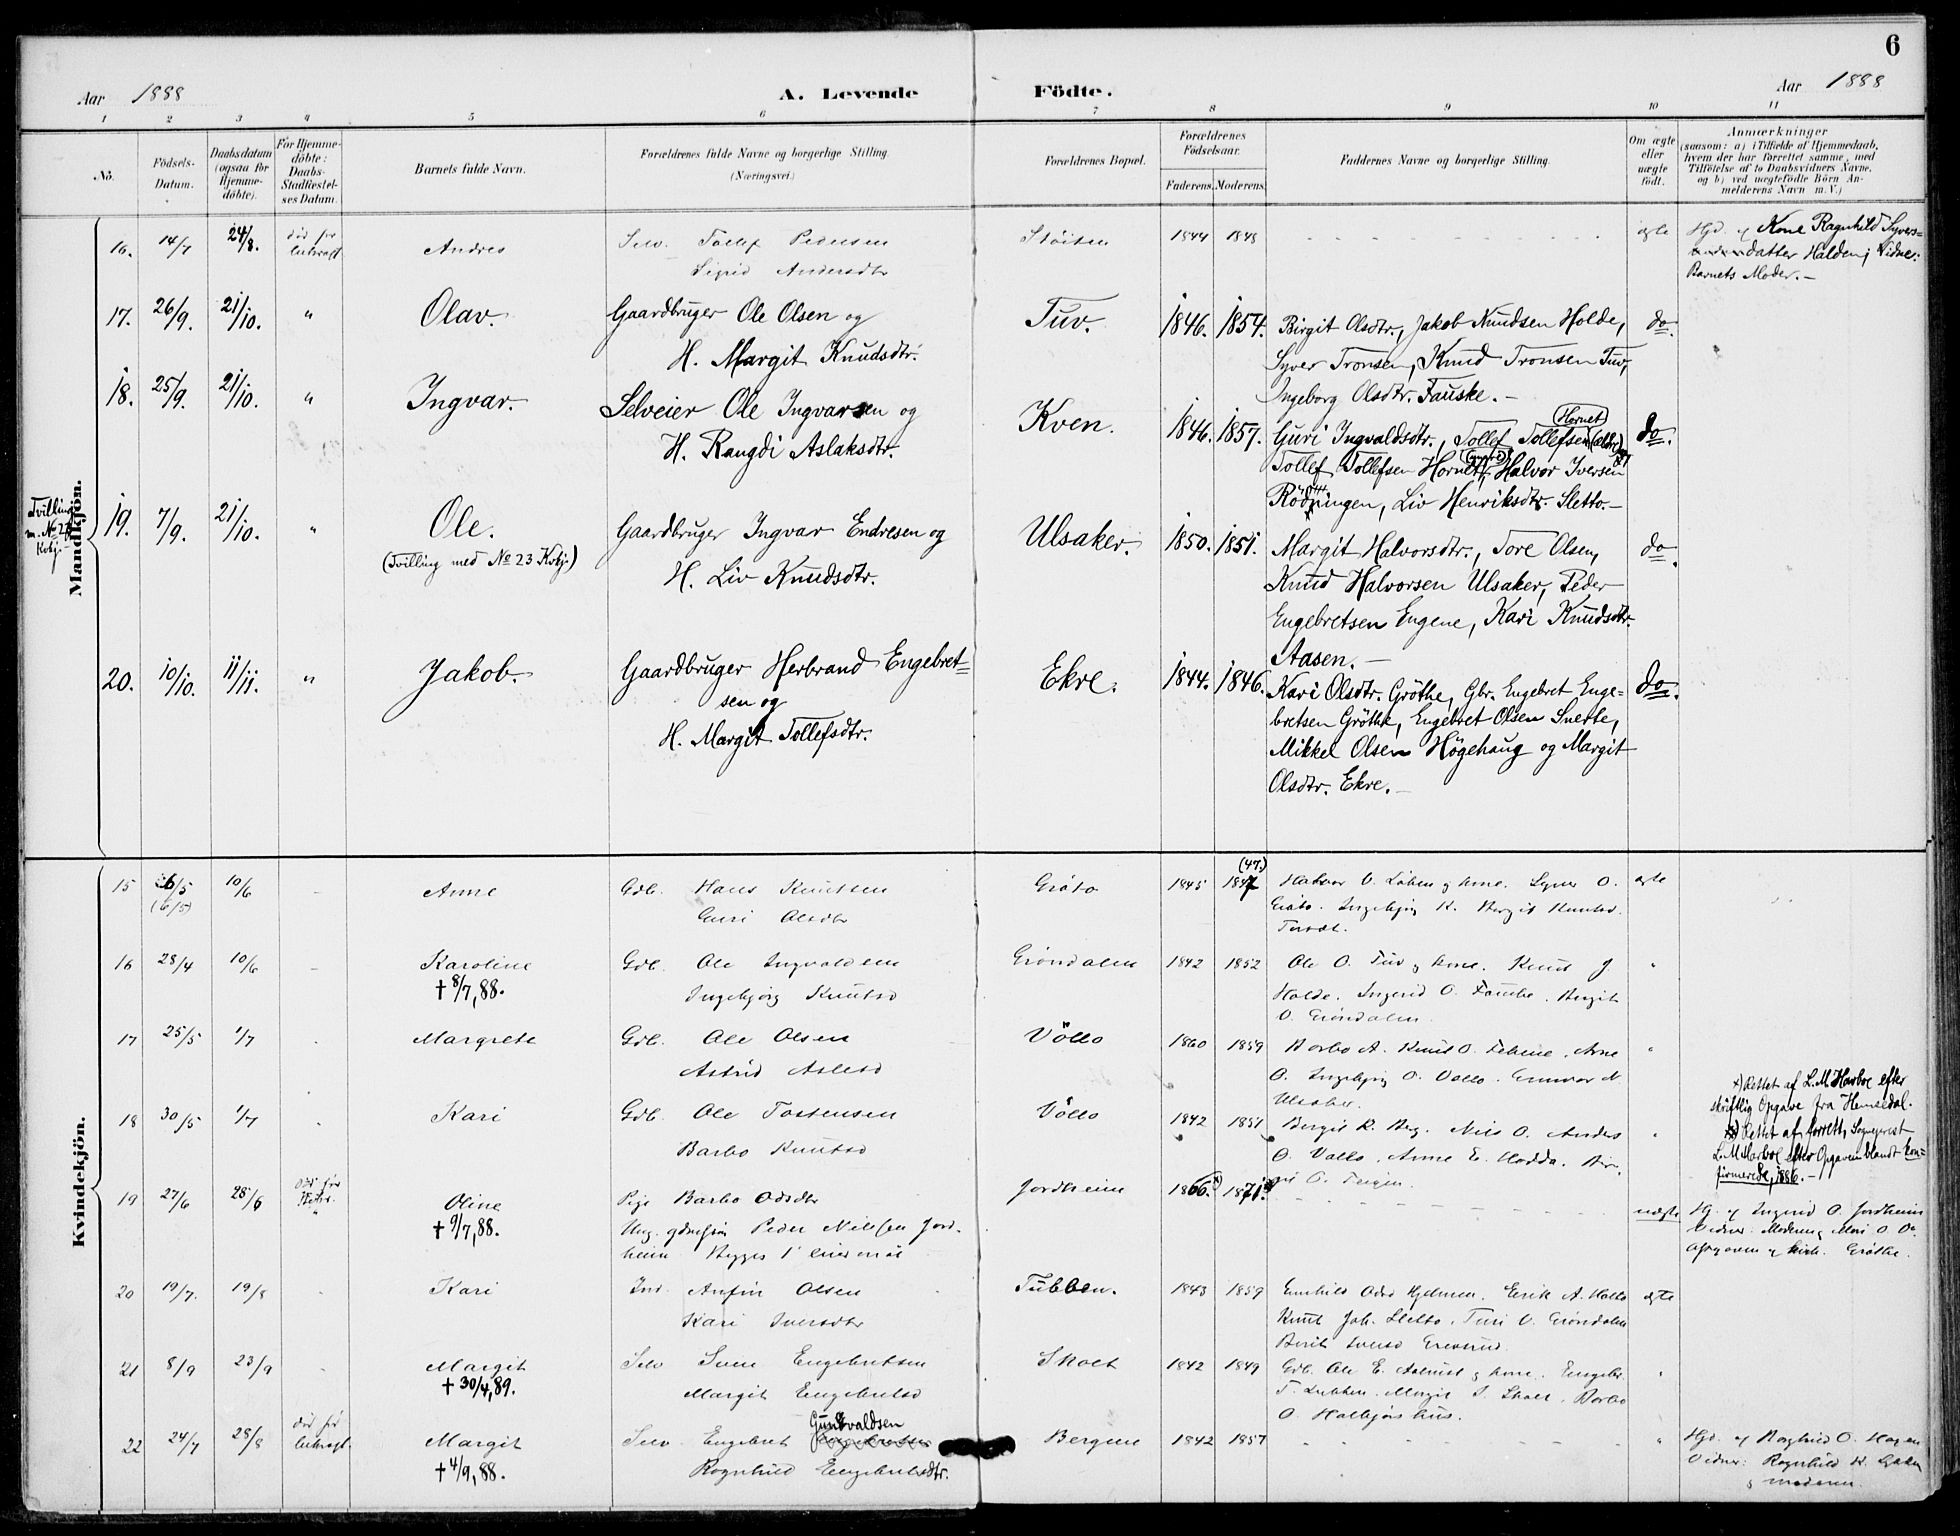 6
Aar 1888
A. Levende Födte.
Aar 1888
1 2 3 4 5 6 7 8 9 10 11
No.
Födsels-Datum.
Daabsdatum (ogsaa for Hjemme-döbte).
For Hjemme-döbte: Daabs-Stadfæstel-ses Datum.
Barnets fulde Navn.
Forældrenes fulde Navne og borgerlige Stilling.
(Næringsvei.)
Forældrenes Bopæl.
Forældrenes Födselsaar.
Faderens. Moderens.
Faddernes Navne og borgerlige Stilling.
Om ægte eller uægte födt.
Anmærkninger
(saasom: a) i Tilfælde af Hjemmedaab,
hvem der har forrettet samme, med
Tilföielse af to Daabsvidners Navne,
og b) ved uægtefödte Börn An-
melderens Navn m. V.)
Mandkjön.
16. 14/7 24/8. död før Andres Selv. Tollef Pedersen 1844 1848 ægte Hjd. af Kone Ragnhild Syvers-
Sigrid Andersdtr datter Halden; Vidne:
Barnets Moder.-
17. 26/9. 21/10. " Olav. Gaardbruger Ole Olsen og Tuv. 1846. 1854. Birgit Olsdtr., Jakob Knudsen Holde, do.
H. Margit Knudsdtr. Syver Tronsen, Knud Tronsen Tuv,
Ingeborg Olsdtr. Fauske.-
18. 25/9. 21/10. " Ingvar. Selveier Ole Ingvarsen og Kven. 1846. 1857. Guri Ingvaldsdtr., Tollef Tollefsen Hornet (ældre) og do.
H. Rangdi Aslaksdtr. Tollef Tollefsen Hornet (yngre), Halvor Iversen
Rödningen, Liv Henriksdtr. Sletto.-
Tvilling
m. No 23
Kvkj.-
19. 7/9. 21/10. " Ole. Gaardbruger Ingvar Endresen og Ulsaker. 1850. 1851. Margit Halvorsdtr., Tore Olsen, do.
(Tvilling med No 23 Kvkj.) H. Liv Knudsdtr. Knud Halvorsen Ulsaker, Peder
Engebretsen Engene, Kari Knudsdtr.
Aasen.-
20. 10/10. 11/11. " Jakob. Gaardbruger Herbrand Engebret- Ekre. 1844. 1846. Kari Olsdtr. Gröthe, Gbr. Engebret Enge- do.
sen og bretsen Gröthe, Engebret Olsen Snerte,
H. Margit Tollefsdtr. Mikkel Olsen Högehaug og Margit
Olsdtr. Ekre.-
Kvindekjön.
15 26/5 10/6 - Anne Gdb. Hans Knutsen Gröto 1845 1847 (47.) ægte
(6/5) Guri Olsdtr
16 28/4 10/6 - Karoline Gdb. Ole Ingvaldsen Gröndalen 1842 1852 Ole O. Tuv og kone. Knut J "
† 8/7, 88. Ingebjörg Knutsd Holde. Ingerid O. Fauske. Birgit
O. Gröndalen.
17 25/5 1/7 . Margrete Gdb. Ole Olsen Völlo 1860 1859 Barbo A. Knut O. "
Astrid Aslesd O. Ingebjörg O. Vollo. Gunvor N.
Ulsaker.
18 30/5 1/7 . Kari Gdb. Ole Tostensen Völlo 1842 1851 Bergit K. Berg. Nils O. Anders "
Barbo Knutsd O. Vollo. Anne E. Hadda.
x) Rettet af L.M. Harboe efter
skriftlig Opgave fra Hemsedal.
xx) Rettet af forrett. Sogneprest
L.M. Harboe efter Opgaven blandt kon-
firmerede, 1886.-
19 27/6 28/6 död før Oline Pige Barbo Odsdtr Jordheim 1866 x) 1871 uægte Hj. af Ingerid O. Jordheim
† 9/7, 88. Ung. Peder Nilssen Jord-
heim. Begges 1' leiermål
20 19/7. 19/8 . Kari Ind. Anfin Olsen Tubben. 1843 1859 Gunhild Odsd Hjelmen. Eirik A. Hallo ægte
Kari Iversdtr Knut Joh. Sletto. Turi O. Gröndalen
21 8/9 23/9 . Margit Selv Sven Engebretsen Skolt 1842 1849 Gdb. Ole E. og kone. Engebr. "
† 30/4, 89. Margit Engebretsd T. Lubben. Margit S. Skolt. Barbo
O. Halbjörhus.
22 24/7 28/8 död för Margit Selv. Engebret Gundvaldsen Bergene 1842 1857 " Hjd. af Ragnhild O. Hagen
† 4/9, 88. Ragnhild Engebretsdtr. Vidner: Ragnhild K.
og moderen.